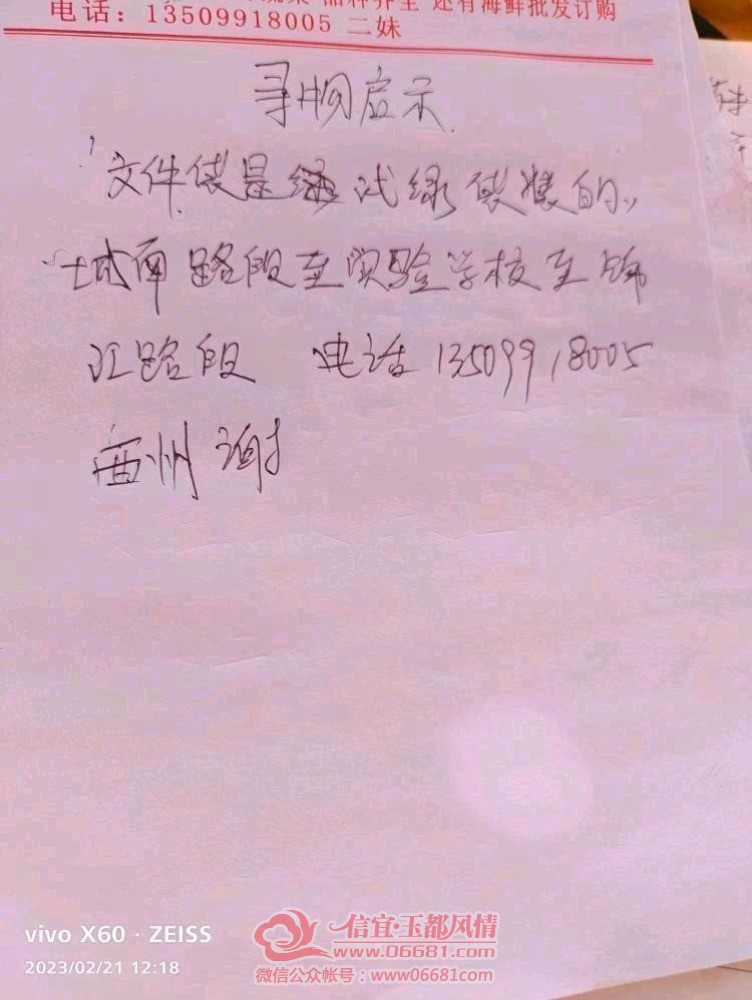 品种齐全 还有海鲜批发订购
电话：13509918005 二妹
寻物启示
文件袋是 浅绿袋装的,,
城南路段至实验学校至锦
江路段 电话 13509918005
谢
vivo X60 · ZEISS
2023/02/21 12:18
信宜·玉都风情
www.06681.com
微信公众帐号：www06681com